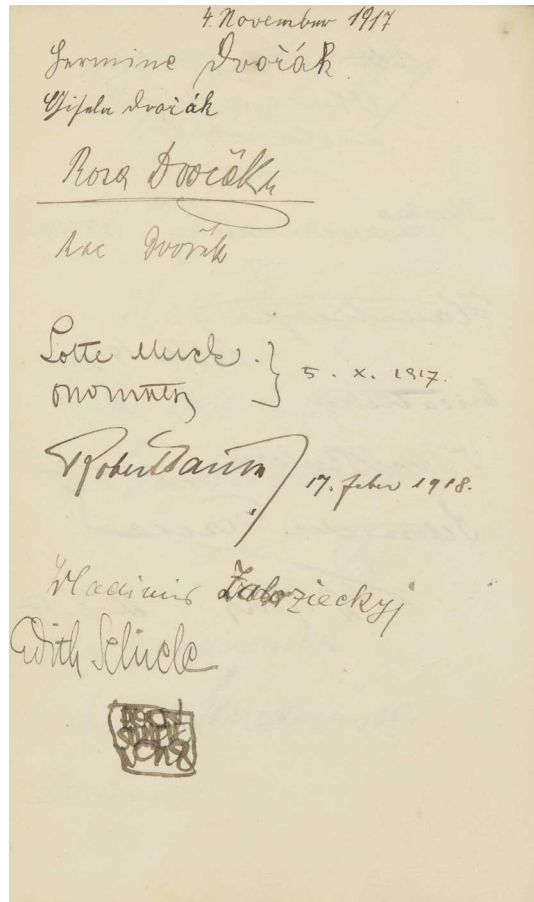 4. November 1917
Hermine Dvořák
Gisela Dvořák
Rosa Dvořák
Dvořák
Lotte
5. X. 1917.
Robert
17. Feber 1918.
Vladimir Zabrzieckyj
Edith Schiele
EGON
SCHIELE
1918